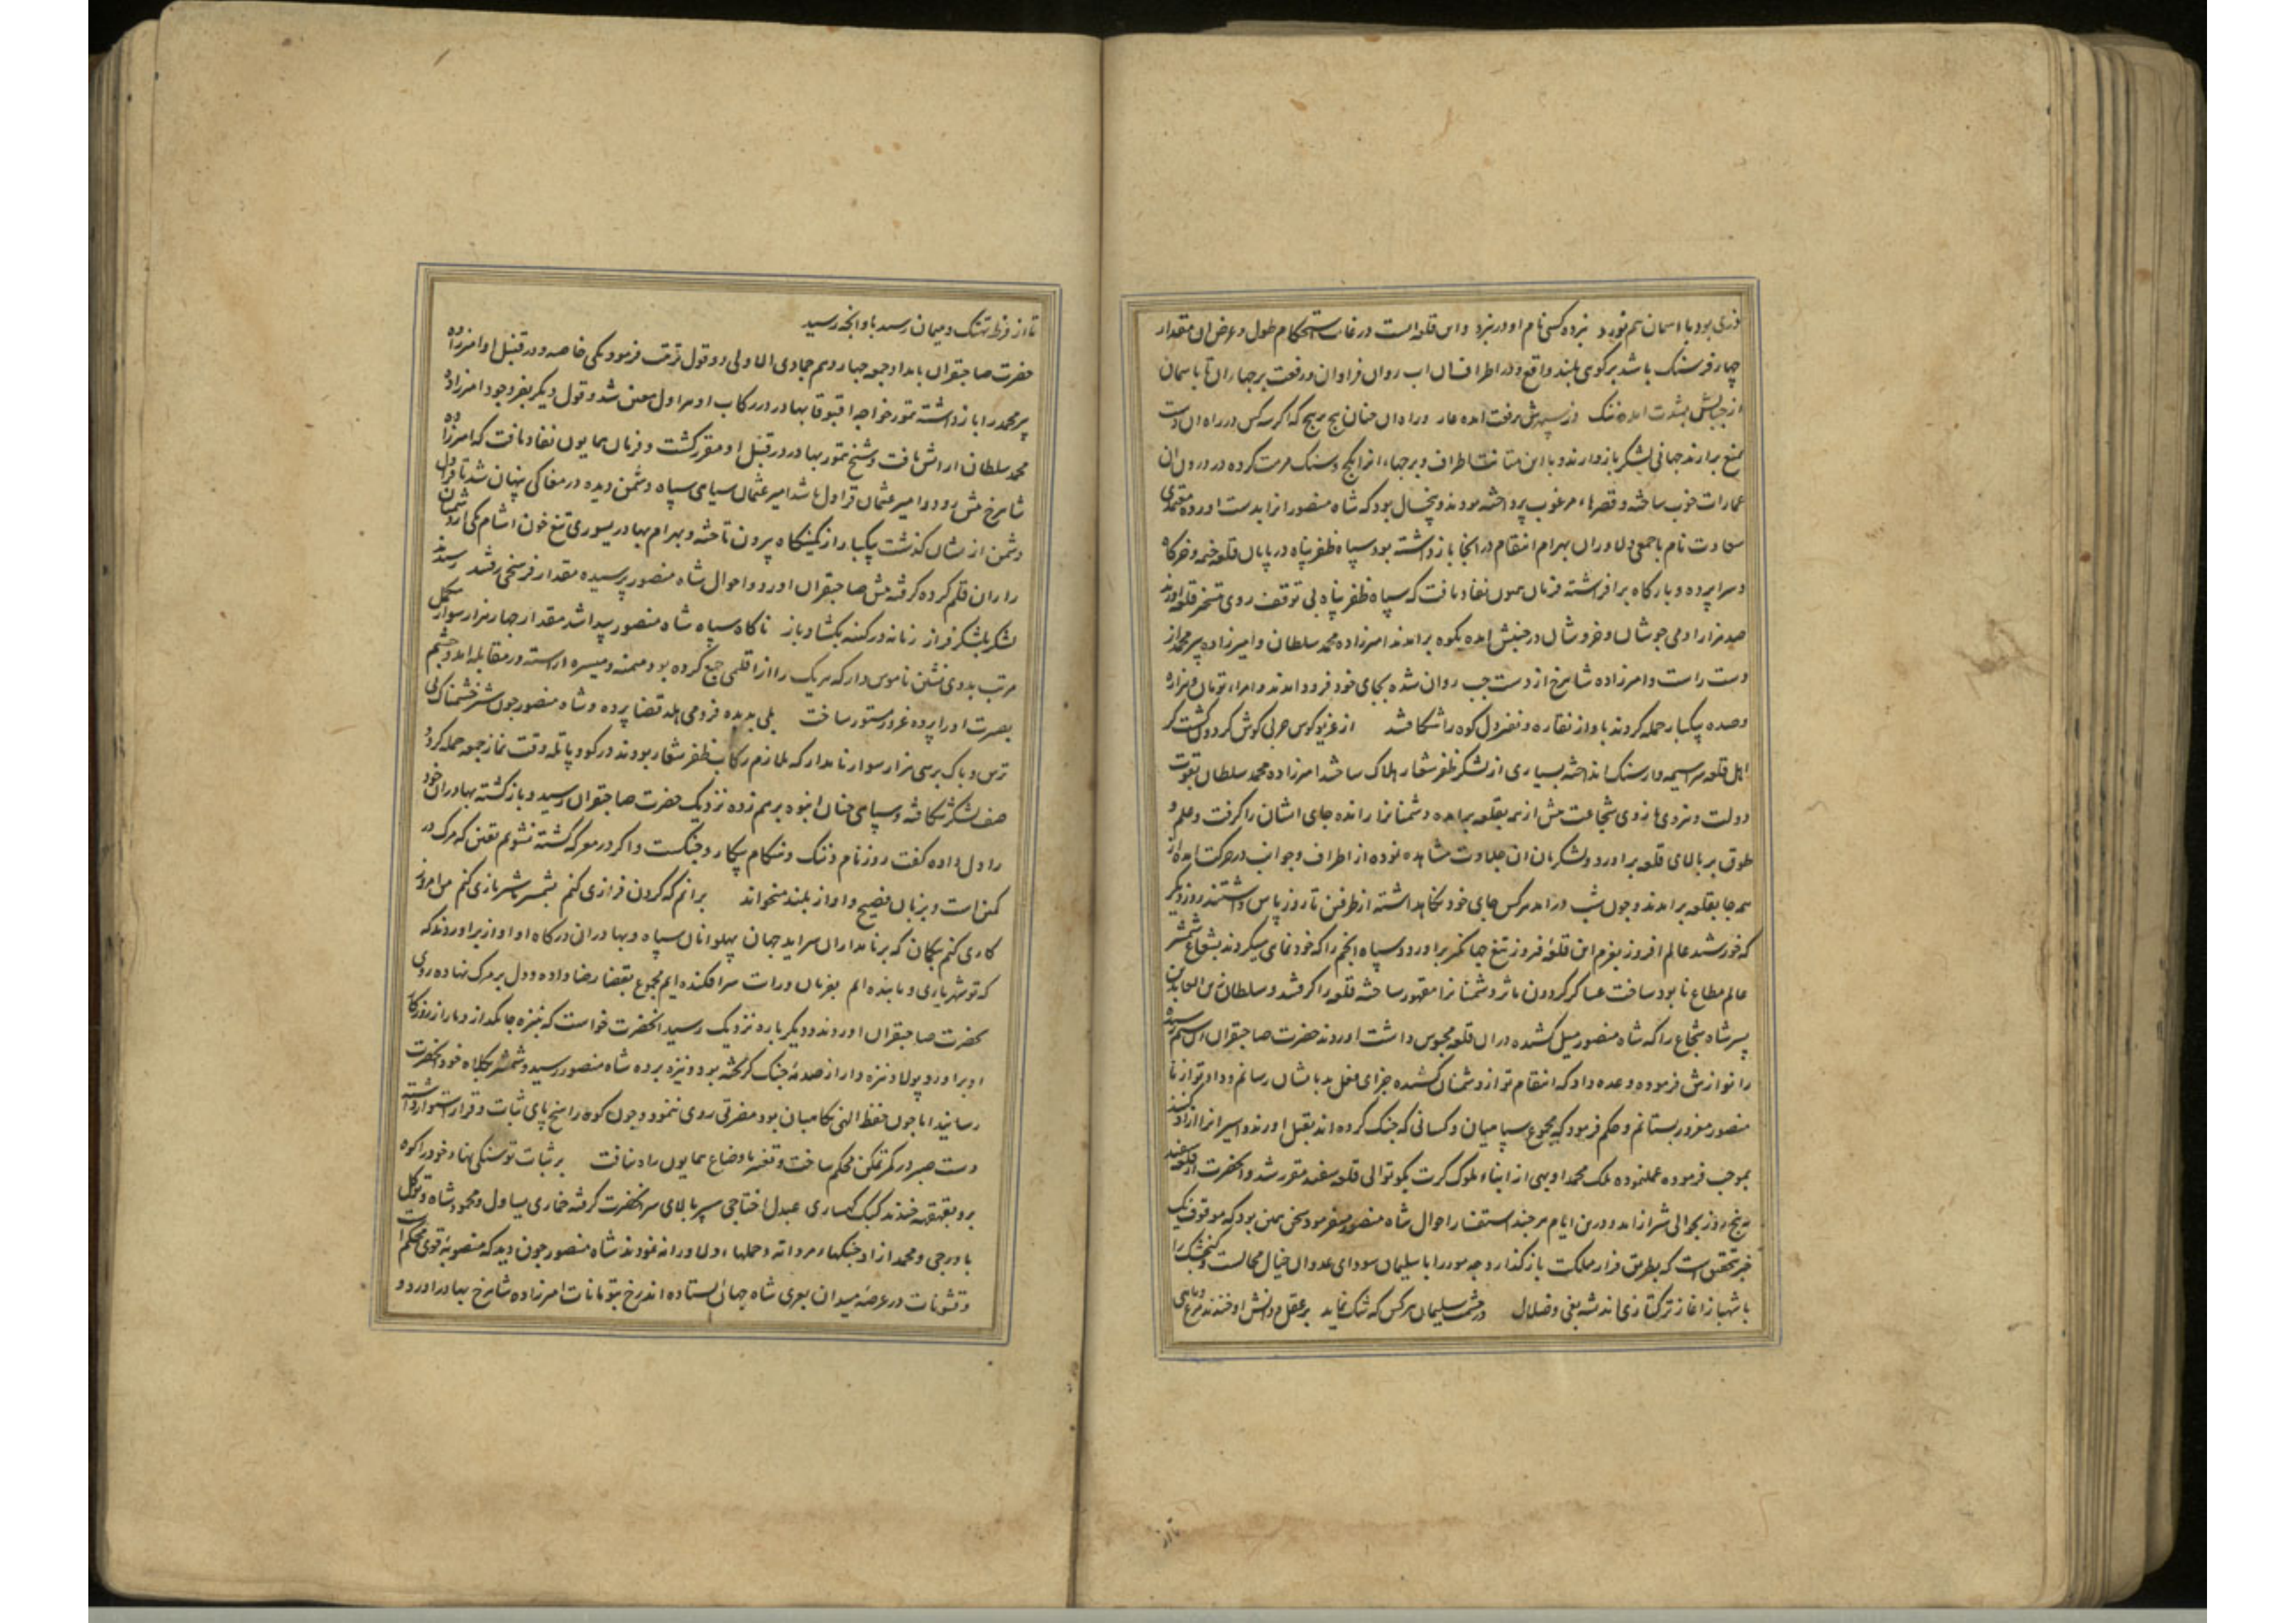 دزی بود با اسمان هم نورد نبرده کسی نام او در نبرد و این قلعه است در غایت استحکام طول و عرض ان مقدار
چهار فرسنک باشد بر کوی بلند واقع و در اطراف ان اب روان فراوان و رفعت برجها ان تا باسمان
از جبالش بشدت امده ننک وز سپهرش برفعت امده عار و راه ان چنان پیچ بر پیچ که اکر سه کس در راه ان دست
بمنع برارند جهانی لشکر باز دارند و با این متانت اطراف و برجهاء انرا بکچ و سنک مرمت کرده در درون ان
عمارات خوب ساخته و قصرهاء مرغوب پرداخته بودند و پنجسال بود که شاه منصور انرا بدست اورده معتمدی
سعادت نام با جمعی دلاوران بهرام انتقام در انجا باز داشته بود سپاه ظفر پناه در پایان قلعه خیمه و خرکاه
و سراپرده و بارکاه برافراشته فرمان همیون نفاذ یافت که سپاه ظفر پناه بی توقف روی بتسخیر قلعه اورند
صد هزار ادمی جوشان و خروشان در جنبش امده بکوه برامدند امرزاده محمد سلطان و امیرزاده پیر محمد از
دست راست و امرزاده شاهرخ از دست چپ روان شده بجای خود فرود امدند و امراء تومان و هزاره
و صده بیکبار حمله کردند باواز نقاره و نفیر دل کوه را شکافتند از غریو کوس حربی کوش کردون کشت کر
اهل قلعه سراسیمه وار سنک انداخته بسیاری از لشکر ظفر شعار هلاک ساختند امرزاده محمد سلطان بقوت
دولت و نیروی بازوی شجاعت پیش از همه بقلعه برامده دشمنانرا رانده جای ایشان را کرفت و علم و
طوق بر بالای قلعه براورد و لشکریان ان جلادت مشاهده نموده از اطراف و جوانب در حرکت امده از
همه جا بقلعه برامدند و چون شب درامد هرکس جای خود نکاه داشته از طرفین تا روز پاس داشتند روز دیکر
که خورشید عالم افروز بعزم این قلعه فیروز تیغ جهانکیر براورد و سپاه انجم را که خودنمای میکردند بشعاع شمشیر
عالم مطاع نابود ساخت عساکر کردون ماثر دشمنانرا مقهور ساخته قلعه را کرفتند و سلطان زین العابدین
پسر شاه شجاع را که شاه منصور میل کشیده در ان قلعه محبوس داشت اوردند حضرت صاحبقران
را نوازش فرموده وعده داد که انتقام تو از دشمنان کشیده جزای فعل بد بایشان رسانم و داد تو از شاه
منصور مغرور بستانم و حکم فرمود که مجموع سپاهیان و کسانی که جنک کرده اند بقتل اورند و اسیرانرا ازاد کنند
بموجب فرموده عملنموده ملک محمد اوبهی از ابناء ملوک کرت بکوتوالی قلعه سفید مقرر شد و انحضرت از قلعه سفید
به پنج روز بحوالی شیراز امد و درین ایام هرچند استفسار احوال شاه منصور میفرمود سخن همین بود که موقوف یک
خبر تحقیق است که بطریق فرار مملکت باز کذارد چه مور را با سلیمان سودای عدوان خیال محالست و کنجشک را
با شهباز اغاز ترکتازی اندیشه بغی و ضلال در حشمت سلیمان هرکس که شک نماید بر عقل و دانش او خندند مرغ و ماهی
تا از
تا از فرط تهتک و میمان رسید باو انچه رسید
حضرت صاحبقران بامداد جمعه چهاردهم جمادی الاولی دو قول ترتیب فرمود یکی خاصه و در قنبل او امرزاده
پیر محمد را باز داشته تمور خواجه اقبوقا بهادر در رکاب او هراول معین شد و قول دیکر بفر وجود امرزاده
محمد سلطان ارایش یافت و شیخ تمور بهادر در قنبل او مقرر کشت و فرمان همایون نفاذ یافت که امرزاده
شاهرخ پیش رود و امیر عثمان قراول باشد امیر عثمان سیاهی سپاه دشمن دیده در مغاکی پنهان شد تا قراول
دشمن از ایشان کذشت بیکبار از کمینکاه بیرون تاخته و بهرام بهادر یسوری تیغ خون اشام یکی از دشمنان
را ران قلم کرده کرفته پیش صاحبقران اورد و احوال شاه منصور پرسیده مقدار فرسخی رفتند رسیدند
لشکر بلشکر فراز زمانه در کینه بکشاد باز ناکاه سپاه شاه منصور پیدا شد مقدار چهار هزار سوار مکمل
مرتب بدوی نشین ناموس دار که هر یک را از اقلیمی جمع کرده بود میمنه و میسره اراسته در مقابله امد و چشم
بصیرت او را پرده غرور مستور ساخت بلی بدیده فرو می هلد قضا پرده و شاه منصور چون شیر خشمناک بی
ترس و باک بر سی هزار سوار نامدار که ملازم رکاب ظفر شعار بودند در کوو پاتله وقت نماز جمعه حمله کرد و
صف لشکر شکافته و سپاهی چنان انبوه برهم زده نزدیک حضرت صاحبقران رسید و باز کشته بهادران خود
را دل داده کفت روز نام و ننک و هنکام پیکار و جنکست و اکر در معرکه کشته نشویم یقین که مرک در
کمین است و بزبان فصیح و اواز بلند میخواند برانم که کردن فرازی کنم بشمشیر شیر بازی کنم من امروز
کاری کنم بیکمان که بر نامداران سراید جهان پهلوانان سپاه و بهادران درکاه او اواز براوردند که
که تو شهریاری و ما بنده ایم بفرمان و رایت سرافکنده ایم مجموع بقضا رضا داده و دل بر مرک نهاده روی
بحضرت صاحبقران اوردند و دیکر باره نزدیک رسید انحضرت خواست که بنیزه جانکداز دمار از روزکار
او براورد پولاد نیزه دار از صدمه جنک کریخته بود و نیزه برده شاه منصور رسید و شمشیر بکلاه خود انحضرت
رسانید اما چون حفظ الهی نکاهبان بود مضرتی روی ننمود و چون کوه راسخ پای ثبات و قرار استوار داشته
دست صبر در کمر تمکن محکم ساخت و تغییر باوضاع همایون راه نیافت بر ثبات تو سنکی نهاد خود را کوه
برو بقهقهه خندند کبک کهساری عبدل اختاجی سپر بالای سر انحضرت کرفته خماری یساول و محمود شاه و توکل
باورجی و محمد ازاد جنکهاء مردانه و حملهاء دلاورانه نمودند شاه منصور چون دید که منصوبه قوی محکم است
و قشونات در عرصه میدان بعری شاه جهان ایستاده اند رخ بتومانات امرزاده شاهرخ بهادر اورد و